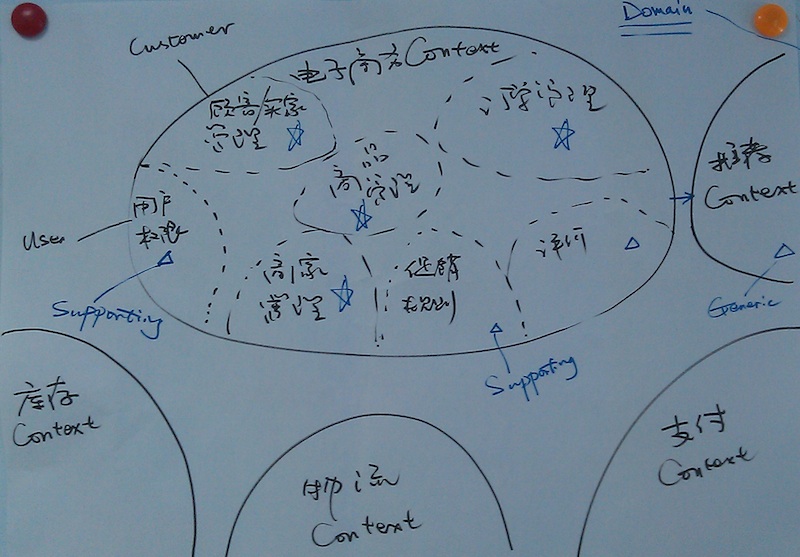 Domain
Customer
电子商务Context
顾客/买家
管理
订单管理
商品管理
推荐
Context
用户
权限
User
Supporting
商家
管理
促销
规则
评价
Supporting
Generic
库存
Context
物流
Context
支付
Context